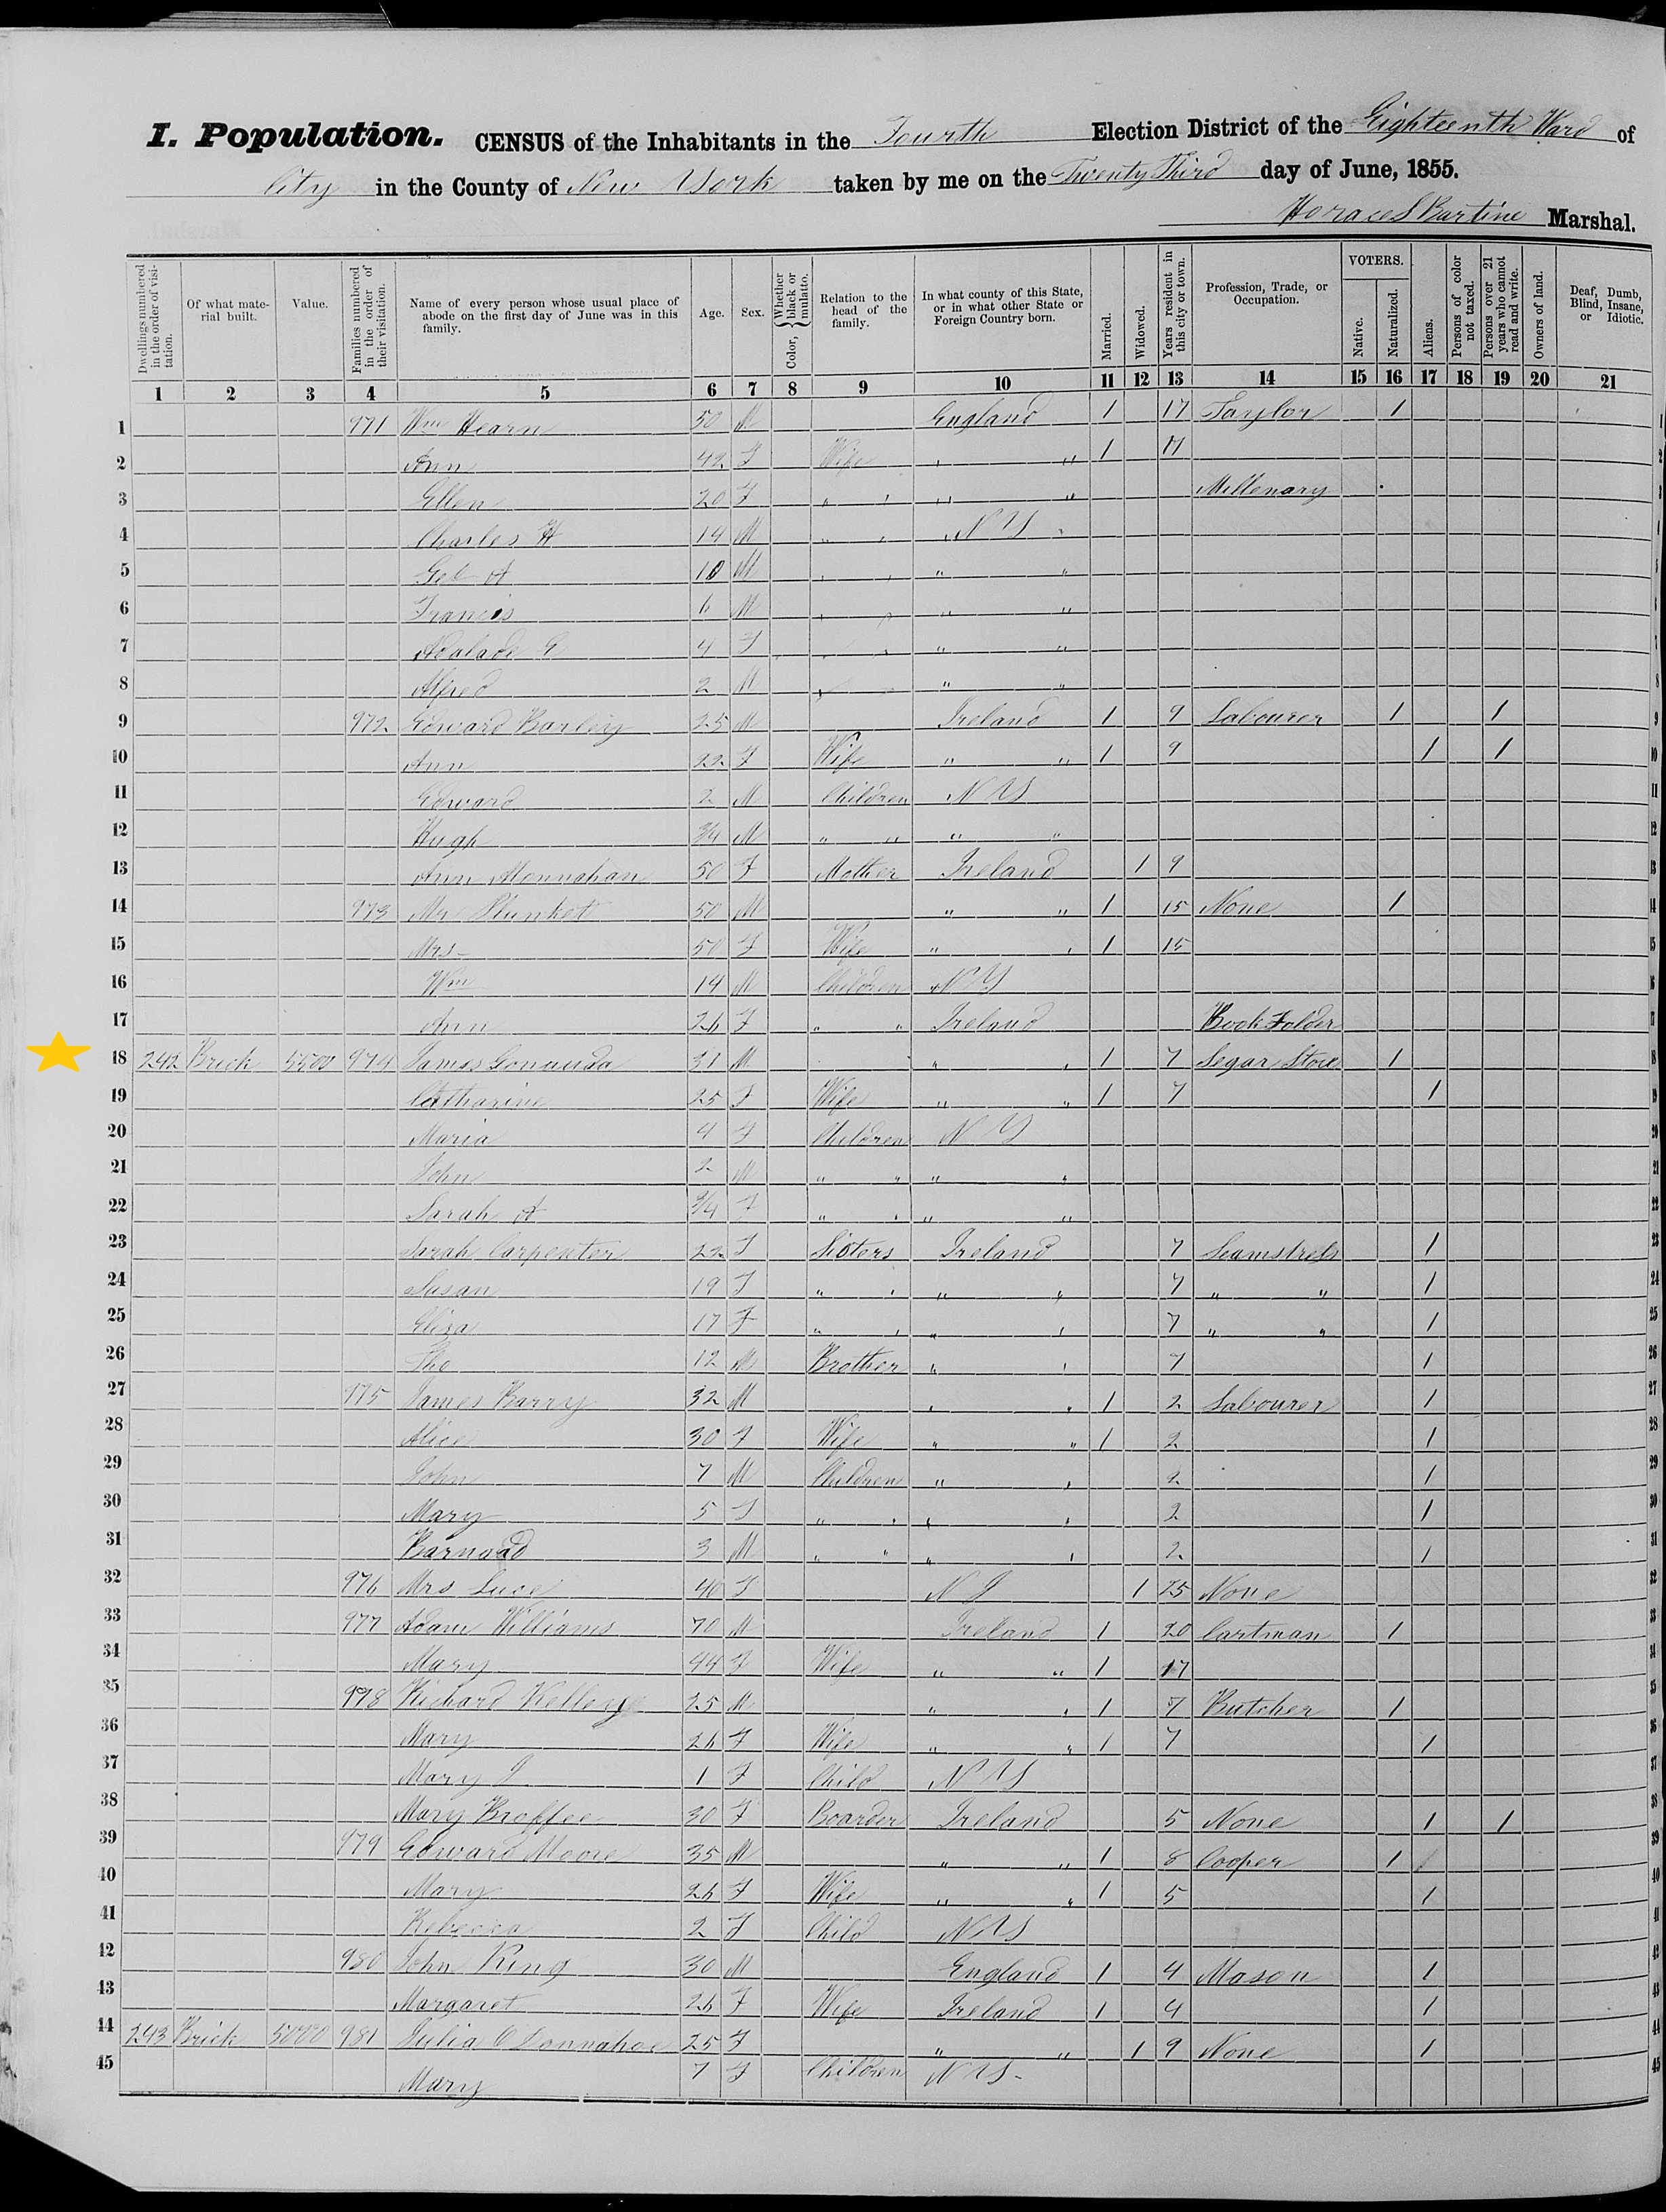 I. Population. CENSUS of the Inhabitants in the Fourth Election District of the Eighteenth Ward of
City in the County of New York taken by me on the Twenty Third day of June, 1855.
Horace S Bartine Marshal.
VOTERS.
Dwellings numbered in the order of visitation. Of what material built. Value. Families numbered in the order of their visitation. Name of every person whose usual place of abode on the first day of June was in this family. Age. Sex. Color, { Whether black or mulatto. Relation to the head of the family. In what county of this State, or in what other State or Foreign Country born. Married. Widowed. Years resident in this city or town. Profession, Trade, or Occupation. Native. Naturalized. Aliens. Persons of color not taxed. Persons over 21 years who cannot read and write. Owners of land. Deaf, Dumb, Blind, Insane, or Idiotic.
1 2 3 4 5 6 7 8 9 10 11 12 13 14 15 16 17 18 19 20 21
1 971 Wm Hearn 50 M England 1 17 Taylor 1 1
2 Ann 42 F Wife " " 1 17 2
3 Ellen 20 F " " " " Millenary 3
4 Charles H 14 M " " N Y 4
5 Geo A 10 M " " " " 5
6 Francis 6 M " " " " 6
7 Adalade E 4 F " " " " 7
8 Alfred 2 M " " " 8
9 972 Edward Barley 25 M Ireland 1 9 Labourer 1 1 9
10 Ann 22 F Wife " " 1 9 1 1 10
11 Edward 2 M Children N Y 11
12 Hugh 3/4 M " " " " 12
13 Ann Monnahan 50 F Mother Ireland 1 9 13
14 973 Mr Plunket 50 M " " 1 15 None 1 14
15 Mrs - 50 F Wife " " 1 15 15
16 Wm 14 M Children N Y 16
17 Ann 26 F " " Ireland Book Folder 17
18 242 Brick 5500 974 James 31 M " " 1 7 Segar Store 1 18
19 Catharine 25 F Wife " " 1 7 1 19
20 Maria 4 F Children N Y 20
21 John 2 M " " " " 21
22 Sarah A 3/4 F " " " " 22
23 Sarah Carpenter 22 F Sisters Ireland 7 Seamstress 1 23
24 Susan 19 F " " " " 7 " " 1 24
25 Eliza 17 F " " " " 7 " " 1 25
26 Tho 12 M Brother " " 7 1 26
27 975 James Barry 32 M " " 1 2 Labourer 1 27
28 Alice 30 F Wife " " 1 2 1 28
29 John 7 M Children " " 2 1 29
30 Mary 5 F " " " " 2 1 30
31 Barnard 3 M " " " " 2 1 31
32 976 Mrs Luce 40 F N J 1 25 None 32
33 977 Adam Williams 70 M Ireland 1 20 Cartman 1 33
34 Mary 44 F Wife " " 1 17 34
35 978 Richard 25 M " " 1 7 Butcher 1 35
36 Mary 26 F Wife " " 1 7 1 36
37 Mary J 1 F Child N Y 37
38 Mary Broffee 30 F Boarder Ireland 5 None 1 1 38
39 979 Edward Moore 35 M " " 1 8 Cooper 1 1 39
40 Mary 26 F Wife " " 1 5 1 40
41 Rebecca 2 F Child N Y 41
42 980 John King 30 M England 1 4 Mason 1 42
43 Margaret 26 F Wife Ireland 1 4 1 43
44 243 Brick 5000 981 Julia O Donnahoe 25 F " " 1 9 None 1 44
45 Mary 7 F Children N Y - 45